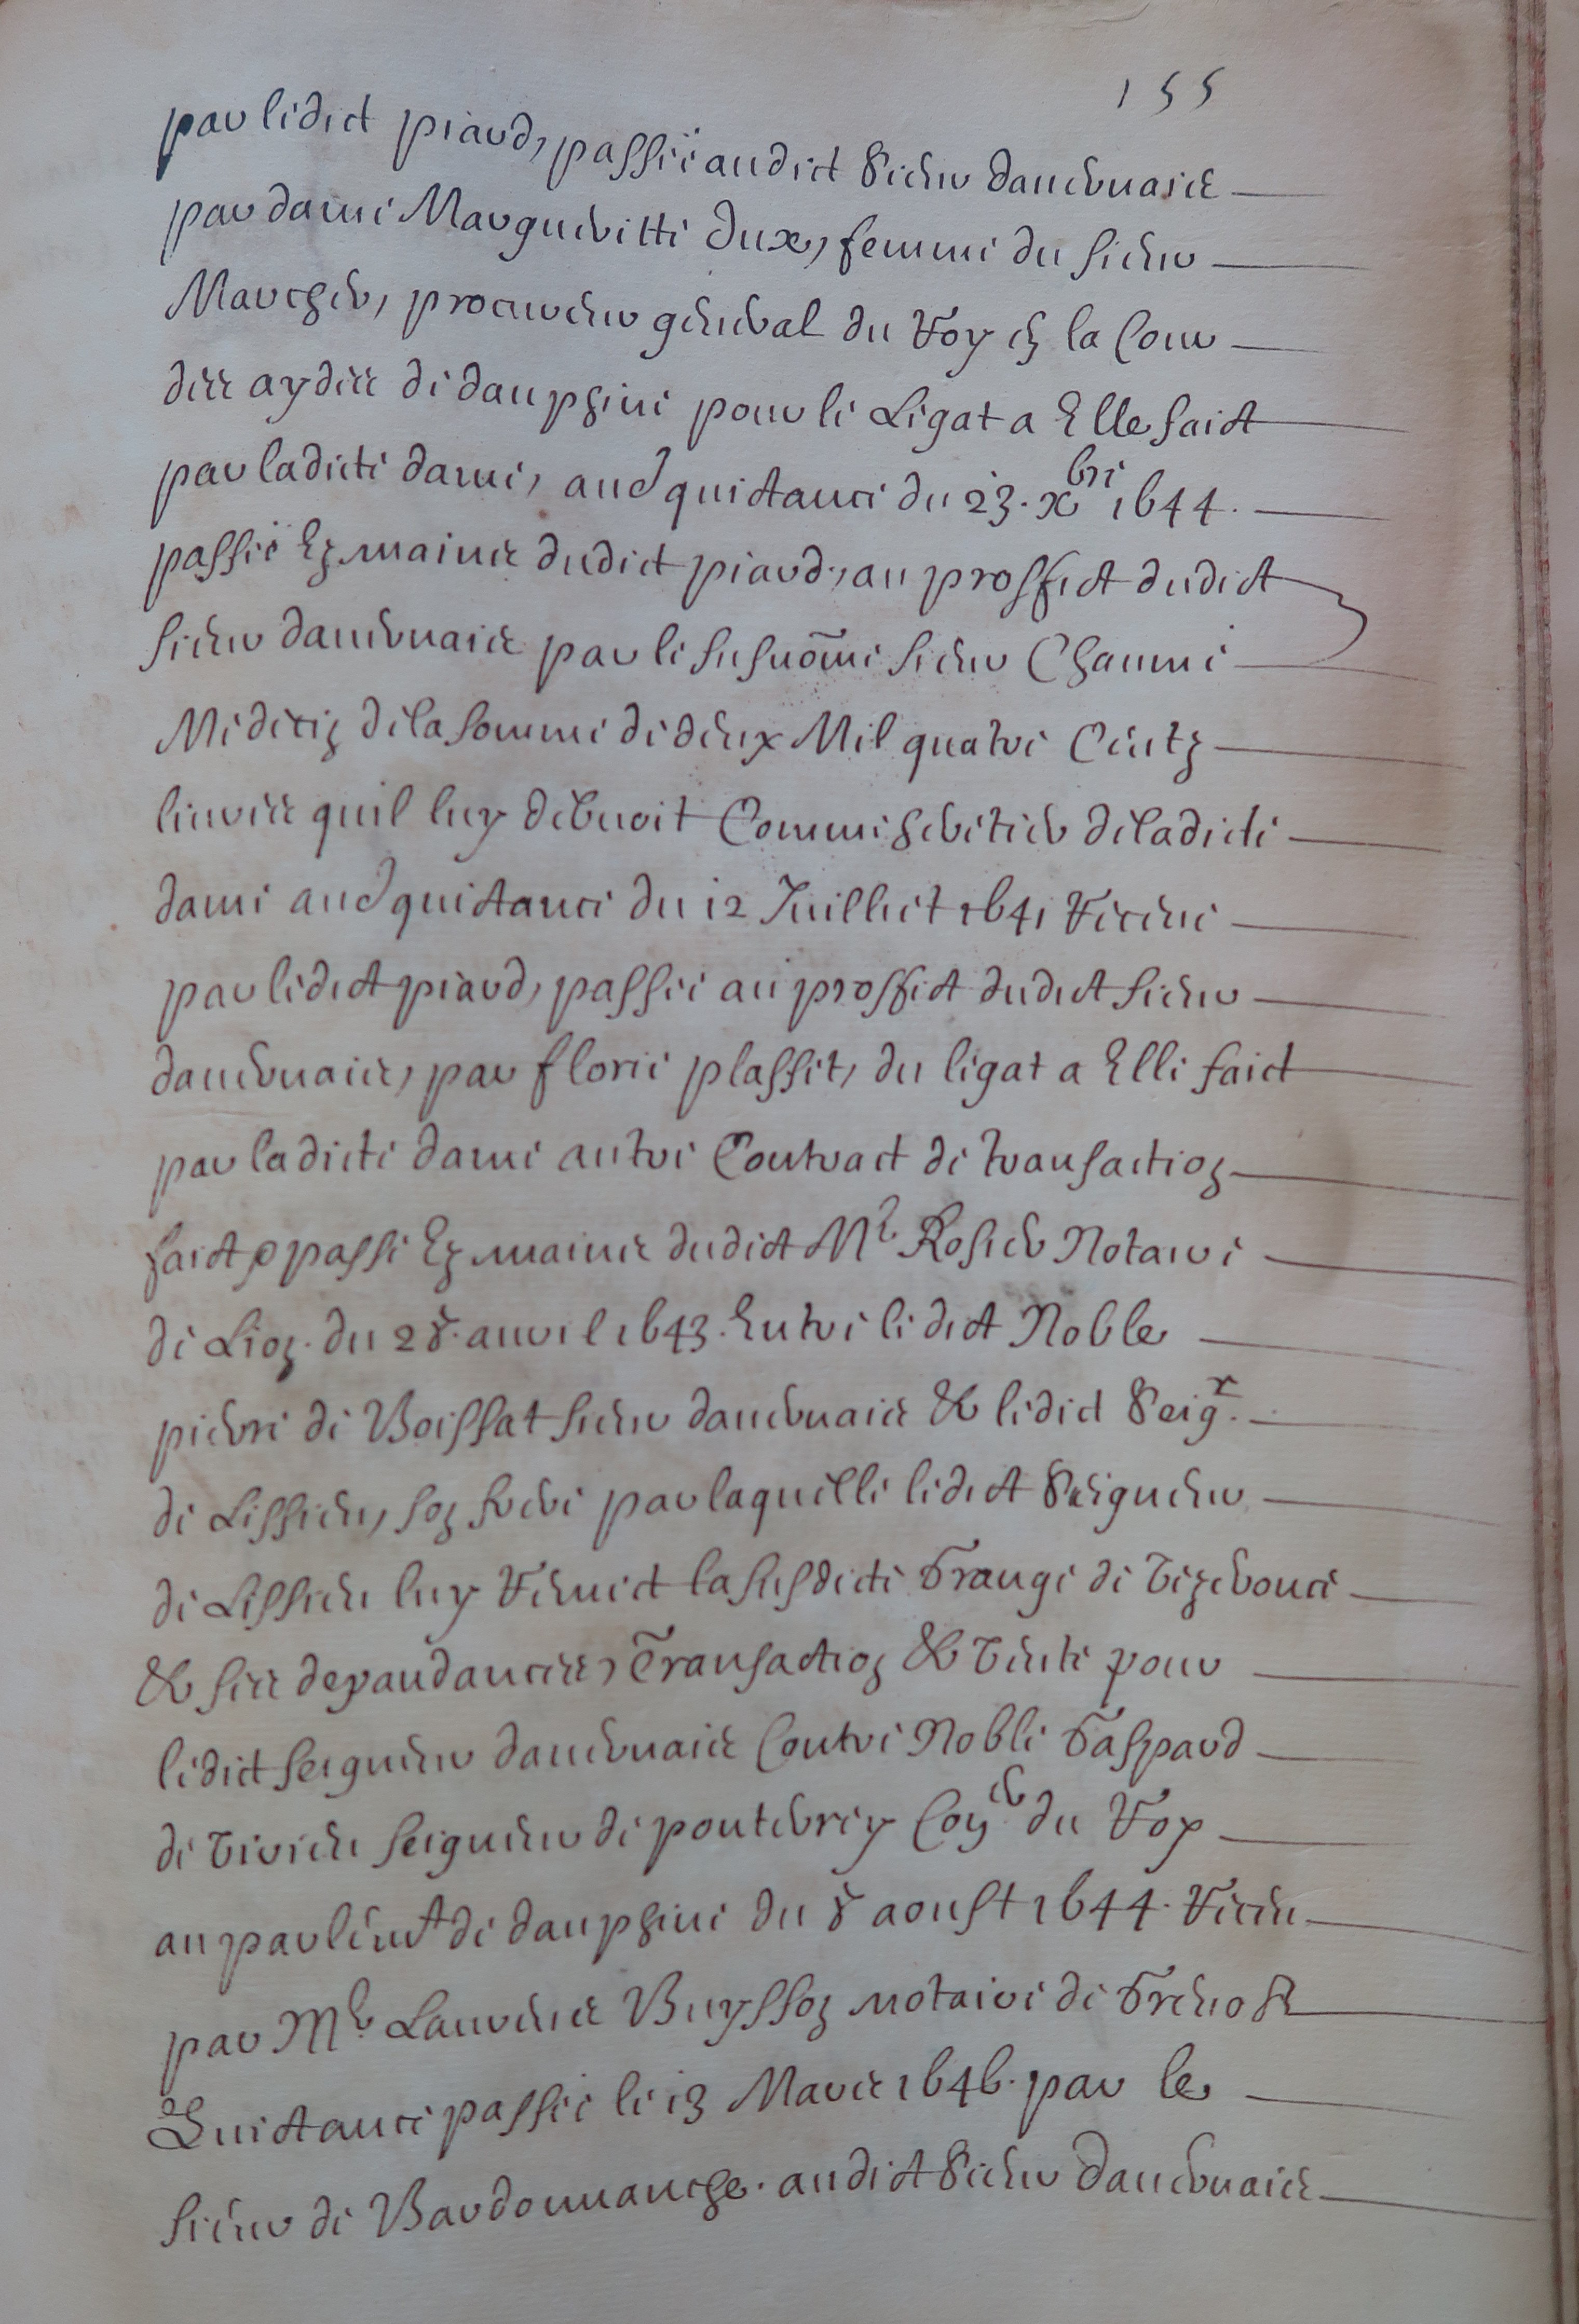 155
par ledict piard, passée audict Sieur dauernaiee
par dame Margueritte dux, femme du sieur
Marcher, procureur général du Roy en la Cour
des aydes de dauphiné pour le Legat a Elle faict
par ladicte dame, aud quictance du 23. xbre 1644.
passée Ez mains dudict piard, au proffict dudict
sieur dauernaiee par le susnõmé sieur Chamme
Medecin de la somme de deux Mil quatre Centz
liures quil luy debuoit Comme heritier de ladicte
dame aud quictance du 12 Juilliet 1641 Receue
par ledict piard, passée au proffict dudict sieur
dauernaiee, par florie plasset, du legat a Elle faict
par ladicte dame autre Contract de transaction
faict & passé Ez mains dudict Me Rosier Notaire
de Lion. du 28. auril 1643. Entre le dict Noble
pierre de Boissat sieur dauernaiee & ledict Seigr.
de Lissieu, son frere par laquelle ledict Seigneur
de Lissieu luy Remect la susdicte Grange de Vezeronce
& ses depandances, Transaction & Vente pour
ledict seigneur dauernaiee Contre Noble Gaspard
de Virieu seigneur de pontevrey Coner du Roy
au parlemt de dauphiné du 8 aoust 1644. Receu
par Me Laurens Buysson notaire de Grenobl
Quictance passée le 13 Mars 1646. par le
sieur de Bardonnanche. audict Sieur dauernaiee